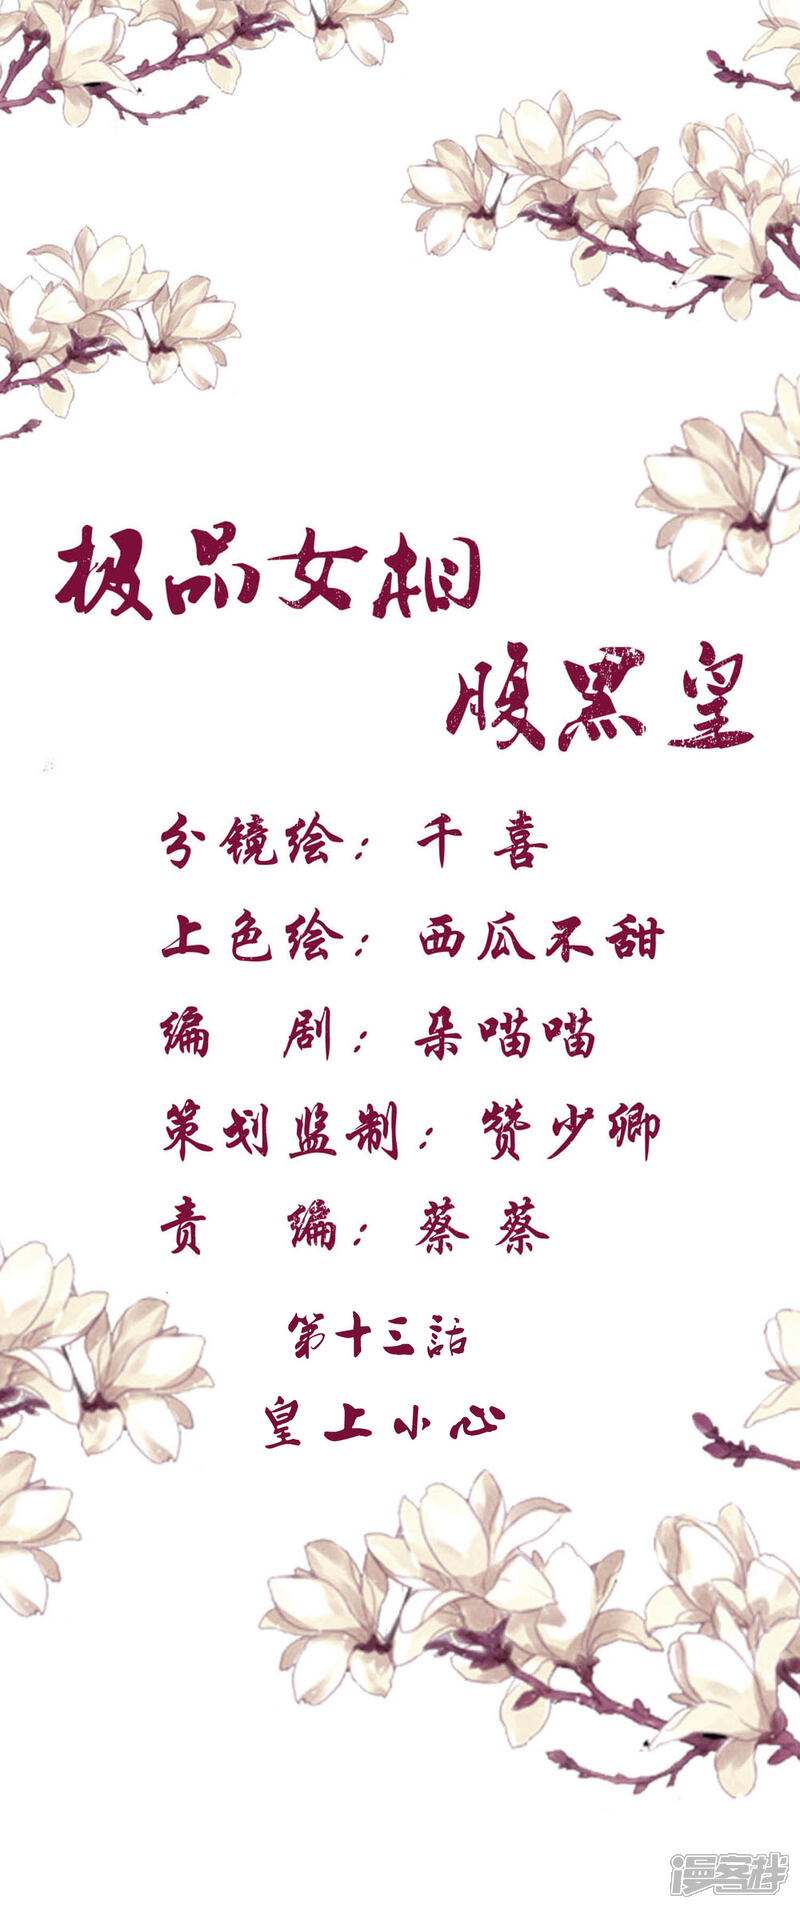 极品女相
腹黑皇
分镜绘：千喜
上色绘：西瓜不甜
编 剧：朵喵喵
策划监制：赞少卿
责 编：蔡蔡
第十三話
皇上小心
漫客栈